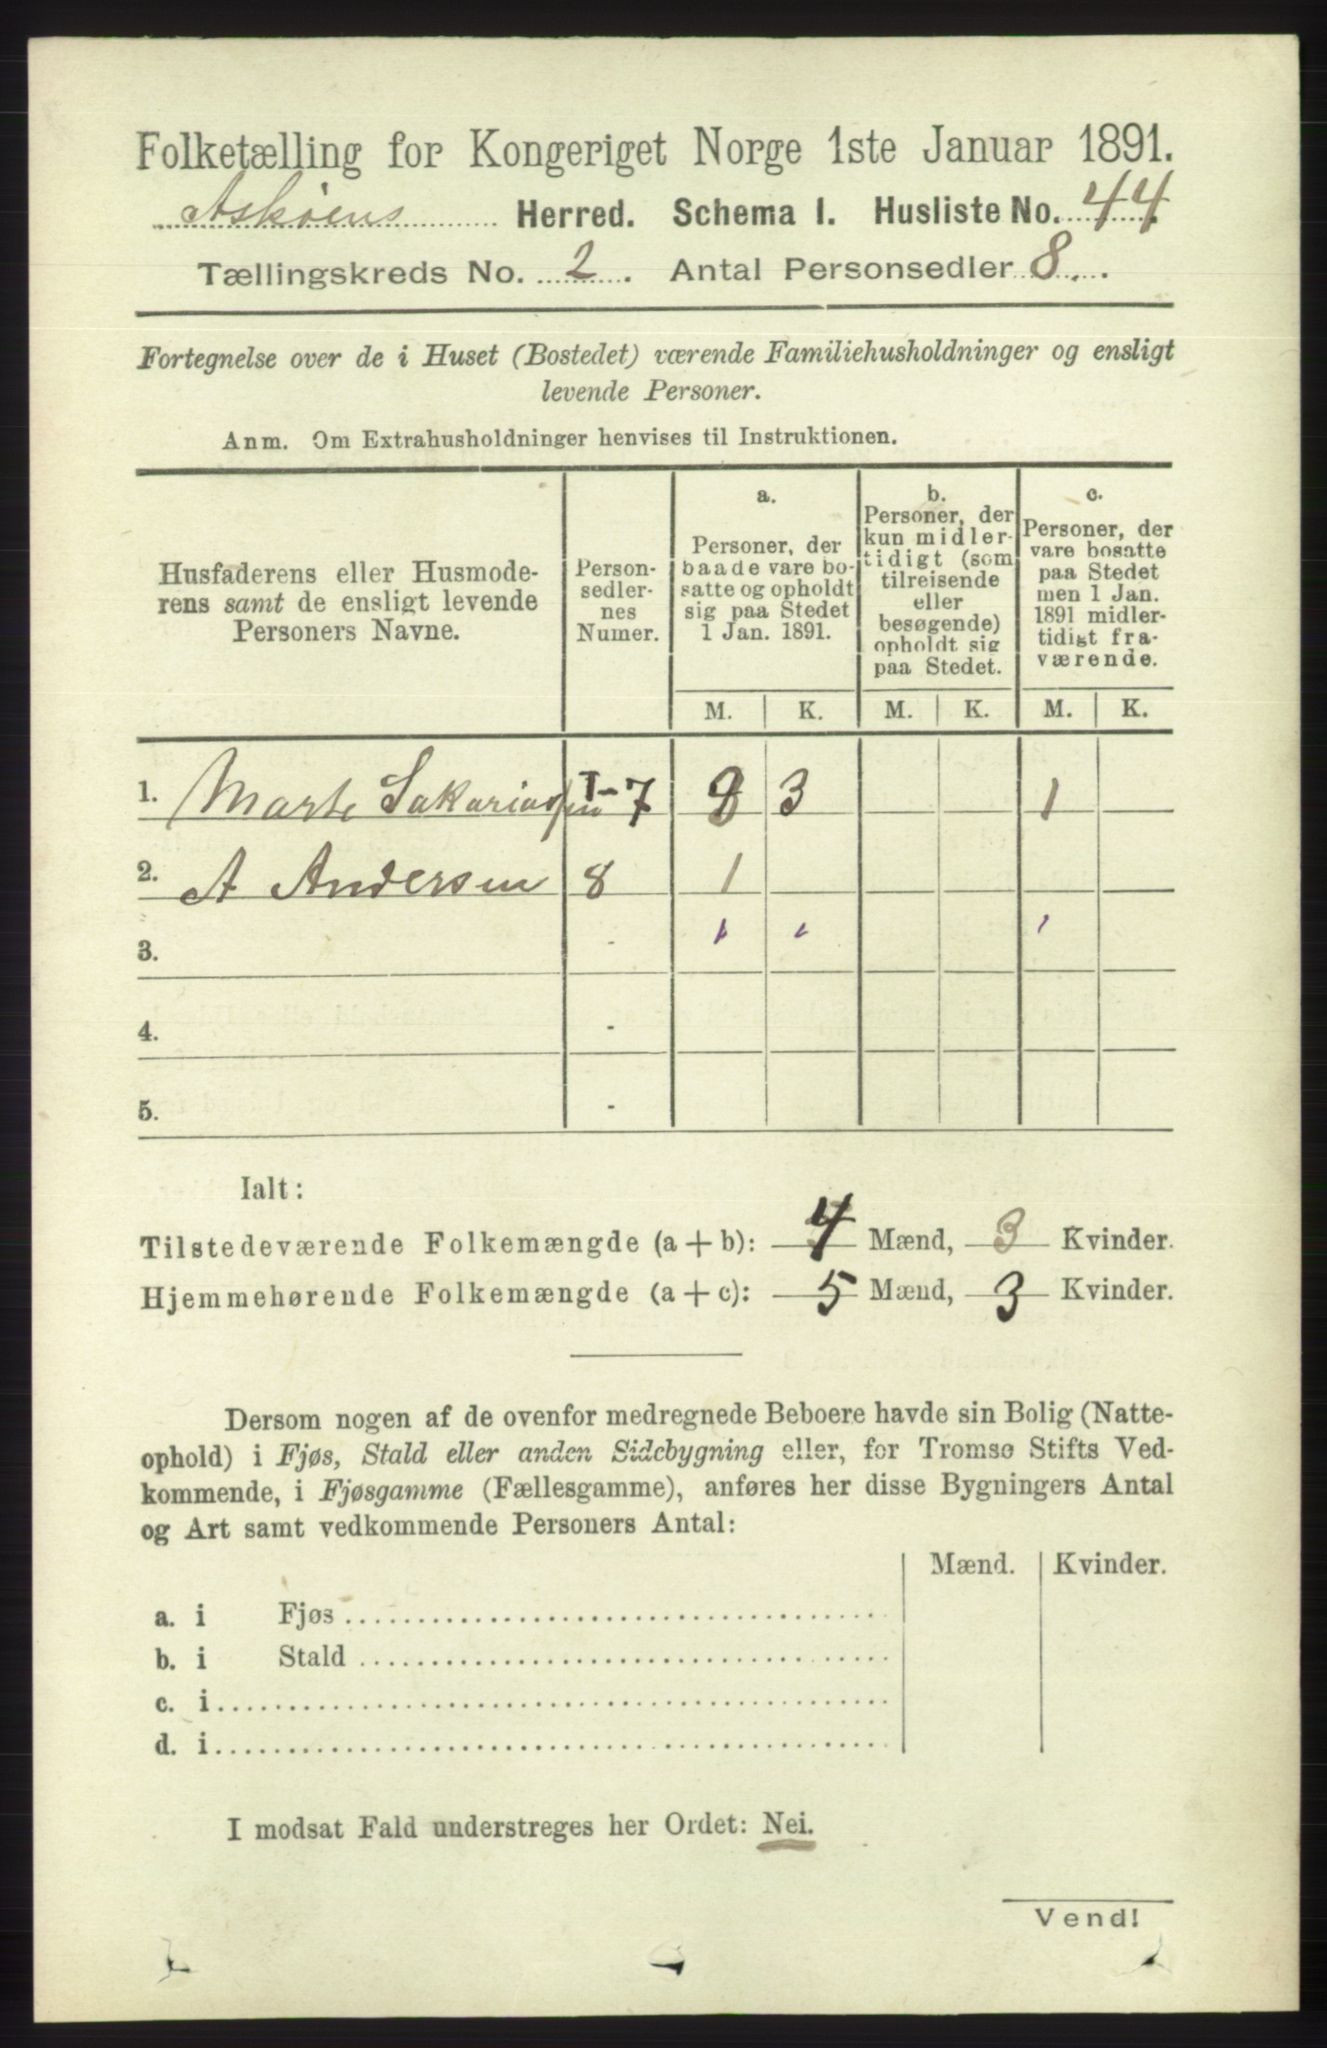 Folketælling for Kongeriget Norge 1ste Januar 1891.
Askøens Herred. Schema I. Husliste No. 44
Tællingskreds No. 2. Antal Personsedler 8.
Fortegnelse over de i Huset (Bostedet) værende Familiehusholdninger og ensligt
levende Personer.
Anm. Om Extrahusholdninger henvises til Instruktionen.
Husfaderens eller Husmode-
rens samt de ensligt levende
Personers Navne.
Person-
sedler-
nes
Numer.
a.
Personer, der
baade vare bo-
satte og opholdt
sig paa Stedet
1 Jan. 1891.
b.
Personer, der
kun midler-
tidigt (som
tilreisende
eller
besøgende)
opholdt sig
paa Stedet.
c.
Personer, der
vare bosatte
paa Stedet
men 1 Jan.
1891 midler-
tidigt fra-
værende.
M. K. M. K. M. K.
1. Marte Sakariassen 1-7 3 1
2. A Andersen 8 1
3. -
4. -
5. -
Ialt:
Tilstedeværende Folkemængde (a + b): 4 Mænd, 3 Kvinder.
Hjemmehørende Folkemængde (a + c): 5 Mænd, 3 Kvinder.
Dersom nogen af de ovenfor medregnede Beboere havde sin Bolig (Natte-
ophold) i Fjøs, Stald eller anden Sidebygning eller, for Tromsø Stifts Ved-
kommende, i Fjøsgamme (Fællesgamme), anføres her disse Bygningers Antal
og Art samt vedkommende Personers Antal:
Mænd. Kvinder.
a. i Fjøs
b. i Stald
c. i
d. i
I modsat Fald understreges her Ordet: Nei.
Vend!